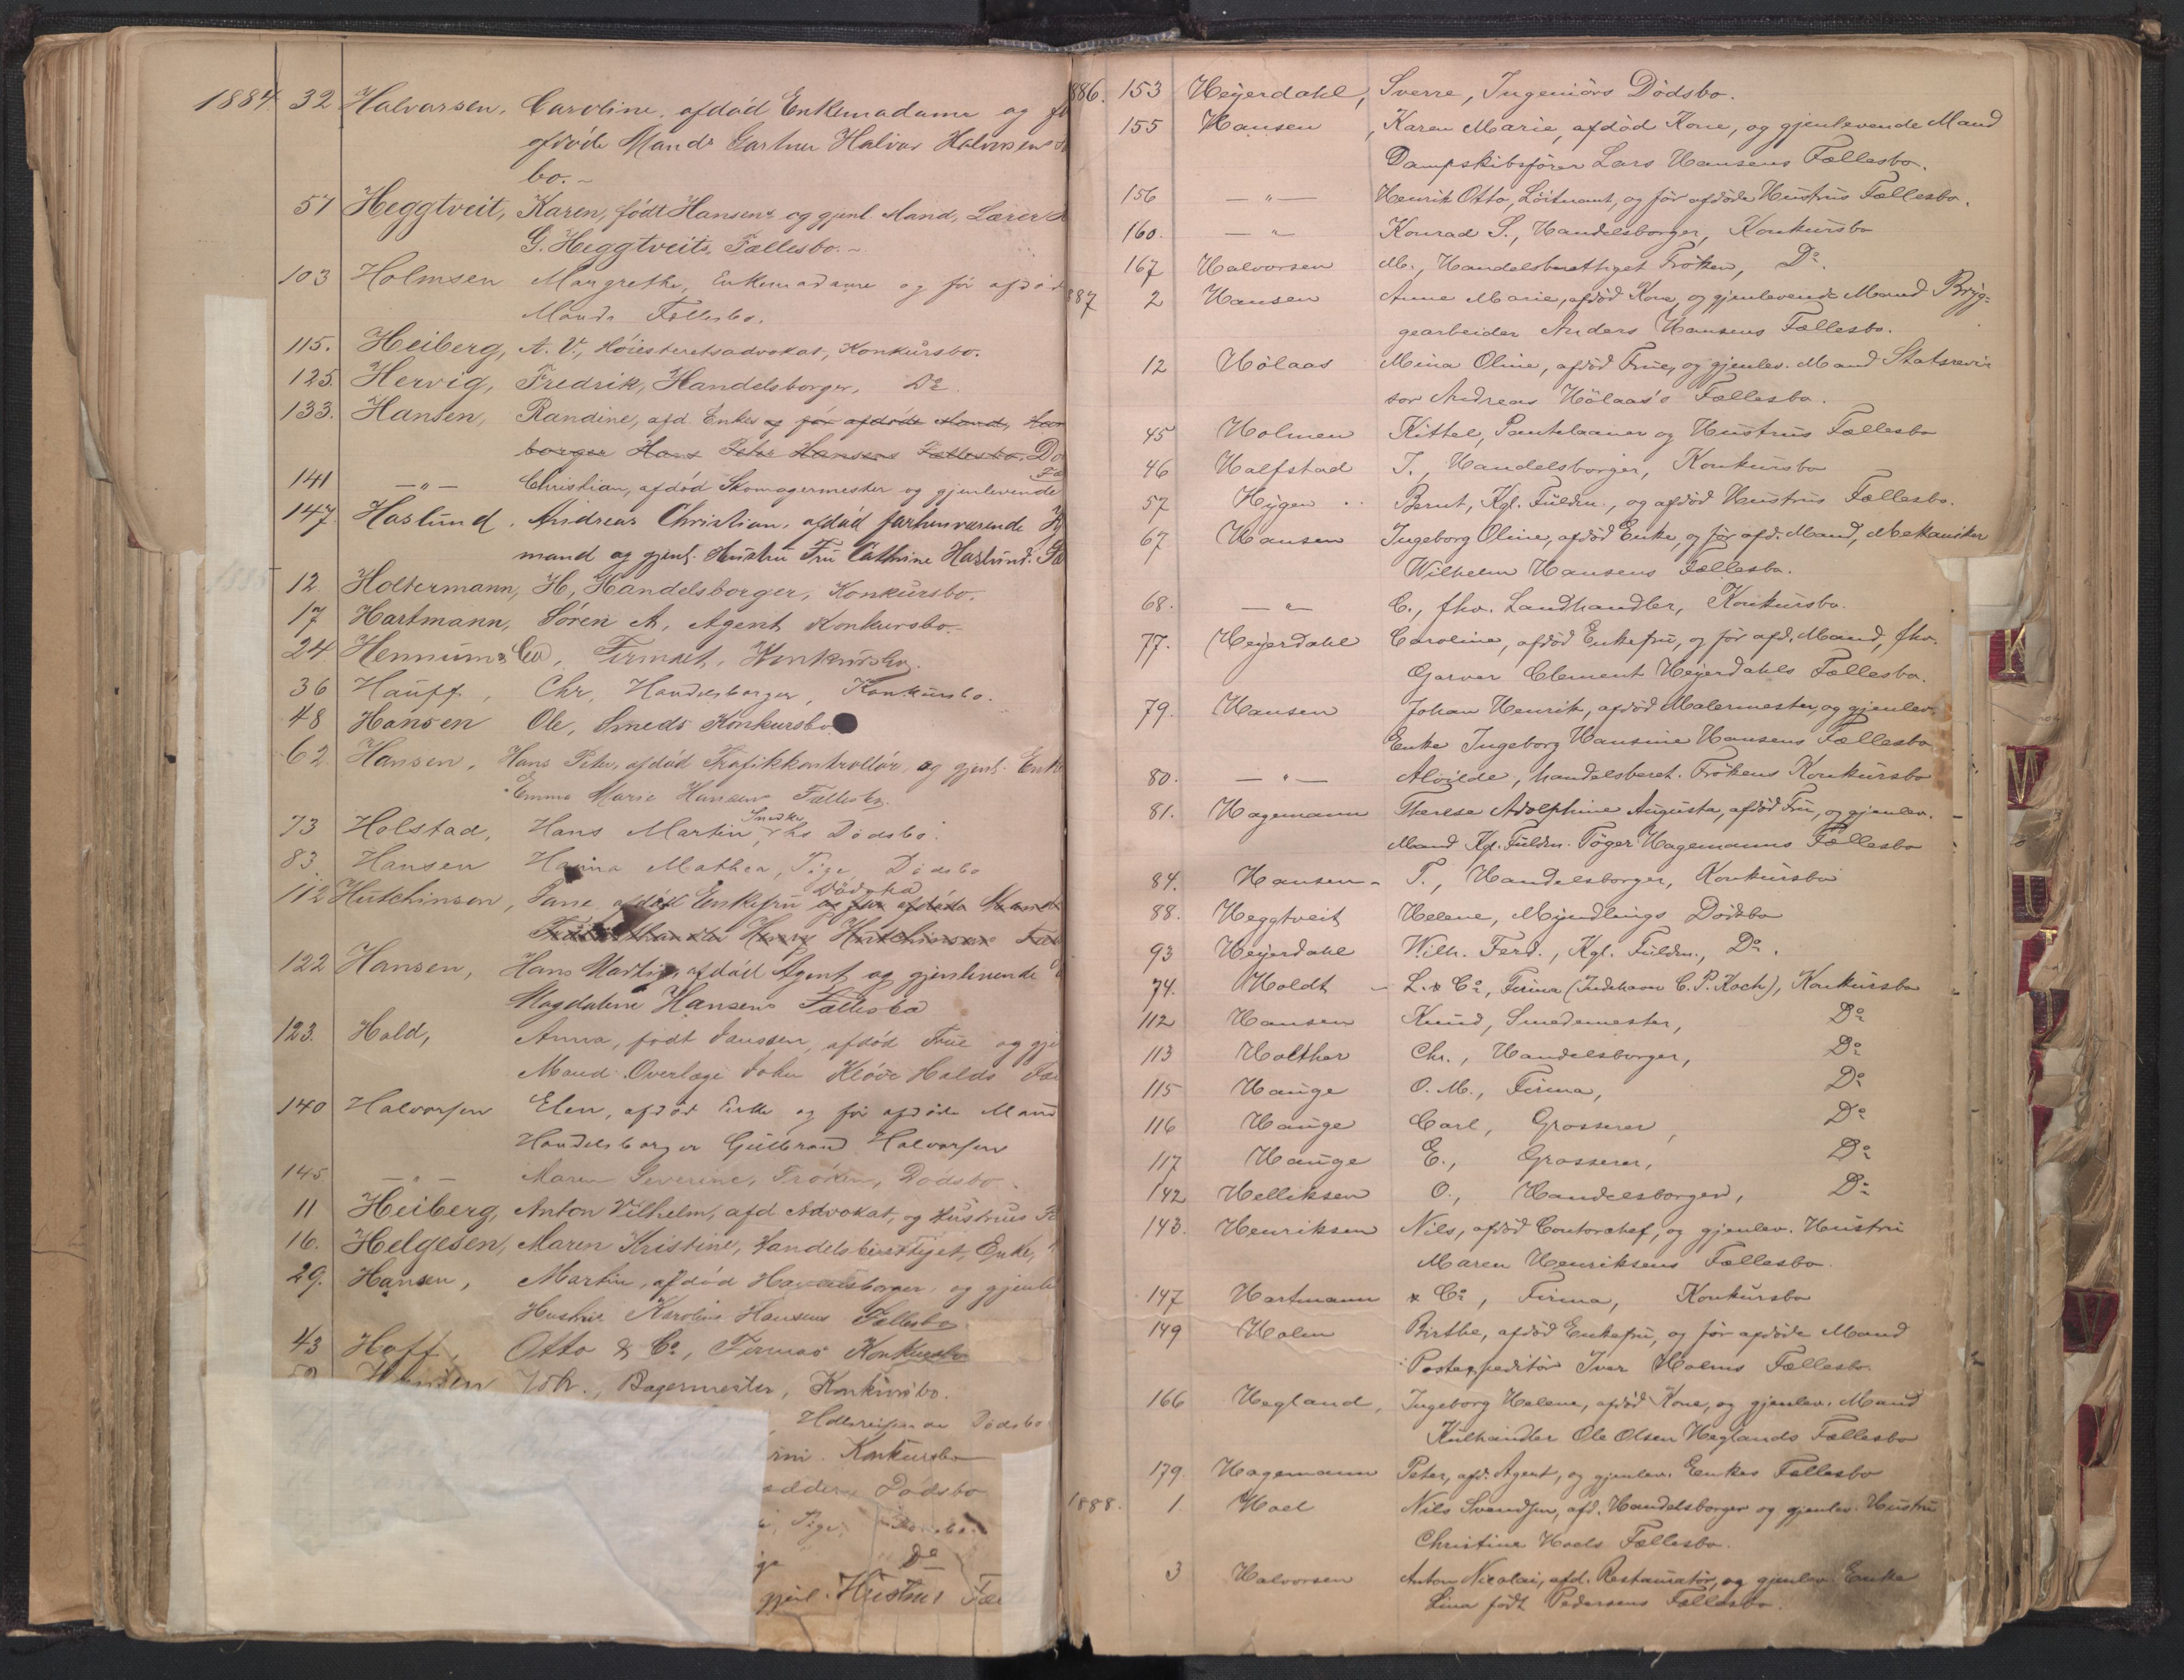 1884. 32 Halvorsen, Caroline, afdød Enkemadame og
afdøde Mands Gartner Halvor Halvorsens
bo.-
57 Heggtveit, Karen, født Hansen, og gjenl. Mand, Lærer
G. Heggtveits Fællesbo.-
103 Holmsen Margrethe, Enkemadame og før afdøde
Mands Fællesbo.
115. Heiberg, A. V., Høiesteretsadvokat, Konkursbo.
125. Hervig, Fredrik, Handelsborger, Do.
133. Hansen, Randine, afd. Enkes og før afdøde Mand,
borger Hans Peter Hansens Fællesbo,
141 — " — Christian, afdød Skomagermester og gjenlevende
147. Haslund, Andreas Christian, afdød forhenværende
mand og gjenl. Hustru Fru Cathrine Haslunds
12 Holtermann, H, Handelsborger, Konkursbo.
17 Hartmann, Søren A, Agent Konkursbo.
24 Hennum & Co, Firmaet, Konkursbo.
36 Hauff, Chr. Handelsborger, Konkursbo.
48 Hansen Ole, Smeds Konkursbo
62 Hansen, Hans Peter, afdød Trafikkontrollør, og gjenl. Enke
Emma Marie Hansens Fællesbo.
73 Holstad, Hans Martin, Snedkers Dødsbo.
83. Hansen Hanna Mathea, Pige, Dødsbo
112 Hutchinson, Jane, afdød Enkefru Dødsbo og før afdøde Mands
Henry Hutchinsons
122 Hansen, Hans Martin, afdød Agent og gjenlevende
Magdalene Hansens Fællesbo
123. Hald, Anna, født Janssen, afdød Frue og
Mand Overlæge John Kløve Halds
140 Halvorsen Elen, afdød Enke og før afdøde Mand
Handelsborger Gulbrand Halvorsen
145 — " — Maren Severine, Frøken, Dødsbo.
11 Heiberg, Anton Vilhelm, afd Advokat, og Hustrus
16. Helgesen, Maren Kristine, Handelsberettiget, Enke,
29. Hansen, Martin, afdød Handelsborger, og
Hustru Karoline Hansens Fællesbo
43 Hoff, Otto & Co, Firmas Konkursbo
Hansen Joh., Bagermester, Konkursbo.
Dødsbo
Konkursbo
Dødsbo
Pige,
Do
gjenl. Hustrus
886. 153 Heyerdahl, Sverre, Ingeniørs Dødsbo.
155 Hansen, Karen Marie, afdød Kone, og gjenlevende Mand
Dampskibsfører Lars Hansens Fællesbo.
156 — " — Henrik Otto, Løitnant, og før afdøde Hustrus Fællesbo.
160. — " — Konrad S., Handelsborger, Konkursbo
167 Halvorsen M., Handelsberettiget Frøken, Do.
887 2 Hansen Anne Marie, afdød Kone, og gjenlevende Mand Bryg=
gearbeider Anders Hansens Fællesbo.
12 Hölaas Mina Oline, afdød Frue, og gjenlev. Mand Statsrevi
sor Andreas Hölaas's Fællesbo.
45 Holmen Kittel, Pantelaaner og Hustrus Fællesbo
46 Halfstad J., Handelsborger, Konkursbo
57 Hygen Bernt, Kgl. Fuldm., og afdød Hustrus Fællesbo.
67 Hansen Ingeborg Oline, afdød Enke, og før afd. Mand, Mekaniker
Wilhelm Hansens Fællesbo.
68. — " — C., fhv. Landhandler, Konkursbo.
77. Heyerdahl Caroline, afdød Enkefru, og før afd. Mand, fhv.
Garver Clement Heyerdahls Fællesbo.
79. Hansen Johan Henrik, afdød Malermester, og gjenlev.
Enke Ingeborg Hansine Hansens Fællesbo
80. — " — Alvilde, handelsberet. Frøkens Konkursbo
81. Hagemann Therese Adolphine Augusta, afdød Fru, og gjenlev.
Mand Kgl. Fuldm. Tøger Hagemanns Fællesbo
84. Hansen T., Handelsborger, Konkursbo
88. Heggtveit Helene, Myndlings Dødsbo
93 Heyerdahl Wilh. Ferd., Kgl. Fuldm., Do.
74. Holdt L. & Co, Firma (Indehaver C. P. Koch), Konkursbo
112 Hansen Knud, Smedemester, Do
113 Holther Chr., Handelsborger, Do
115 Hauge O. M., Firma, Do
116 Hauge Carl, Grosserer, Do
117 Hauge E., Grosserer, Do
142 Helliksen O., Handelsborger, Do
143. Henriksen Nils, afdød Contorchef, og gjenlev. Hustru
Maren Henriksens Fællesbo.
147 Hartmann & Co, Firma, Konkursbo
149 Holm Birthe, afdød Enkefru, og før afdøde Mand
Postexpeditør Iver Holms Fællesbo.
166 Hegland, Ingeborg Helene, afdød Kone, og gjenlev. Mand
Kulhandler Ole Olsen Heglands Fællesbo
179. Hagemann Peter, afd. Agent, og gjenlev. Enkes Fællesbo
1888. 1. Hoel Nils Svendsen, afd. Handelsborger og gjenlev. Hustru
Christine Hoels Fællesbo.
3 Halvorsen Anton Nicolai, afd. Restauratør, og gjenlev. Enke
Lina født Pedersens Fællesbo.
K